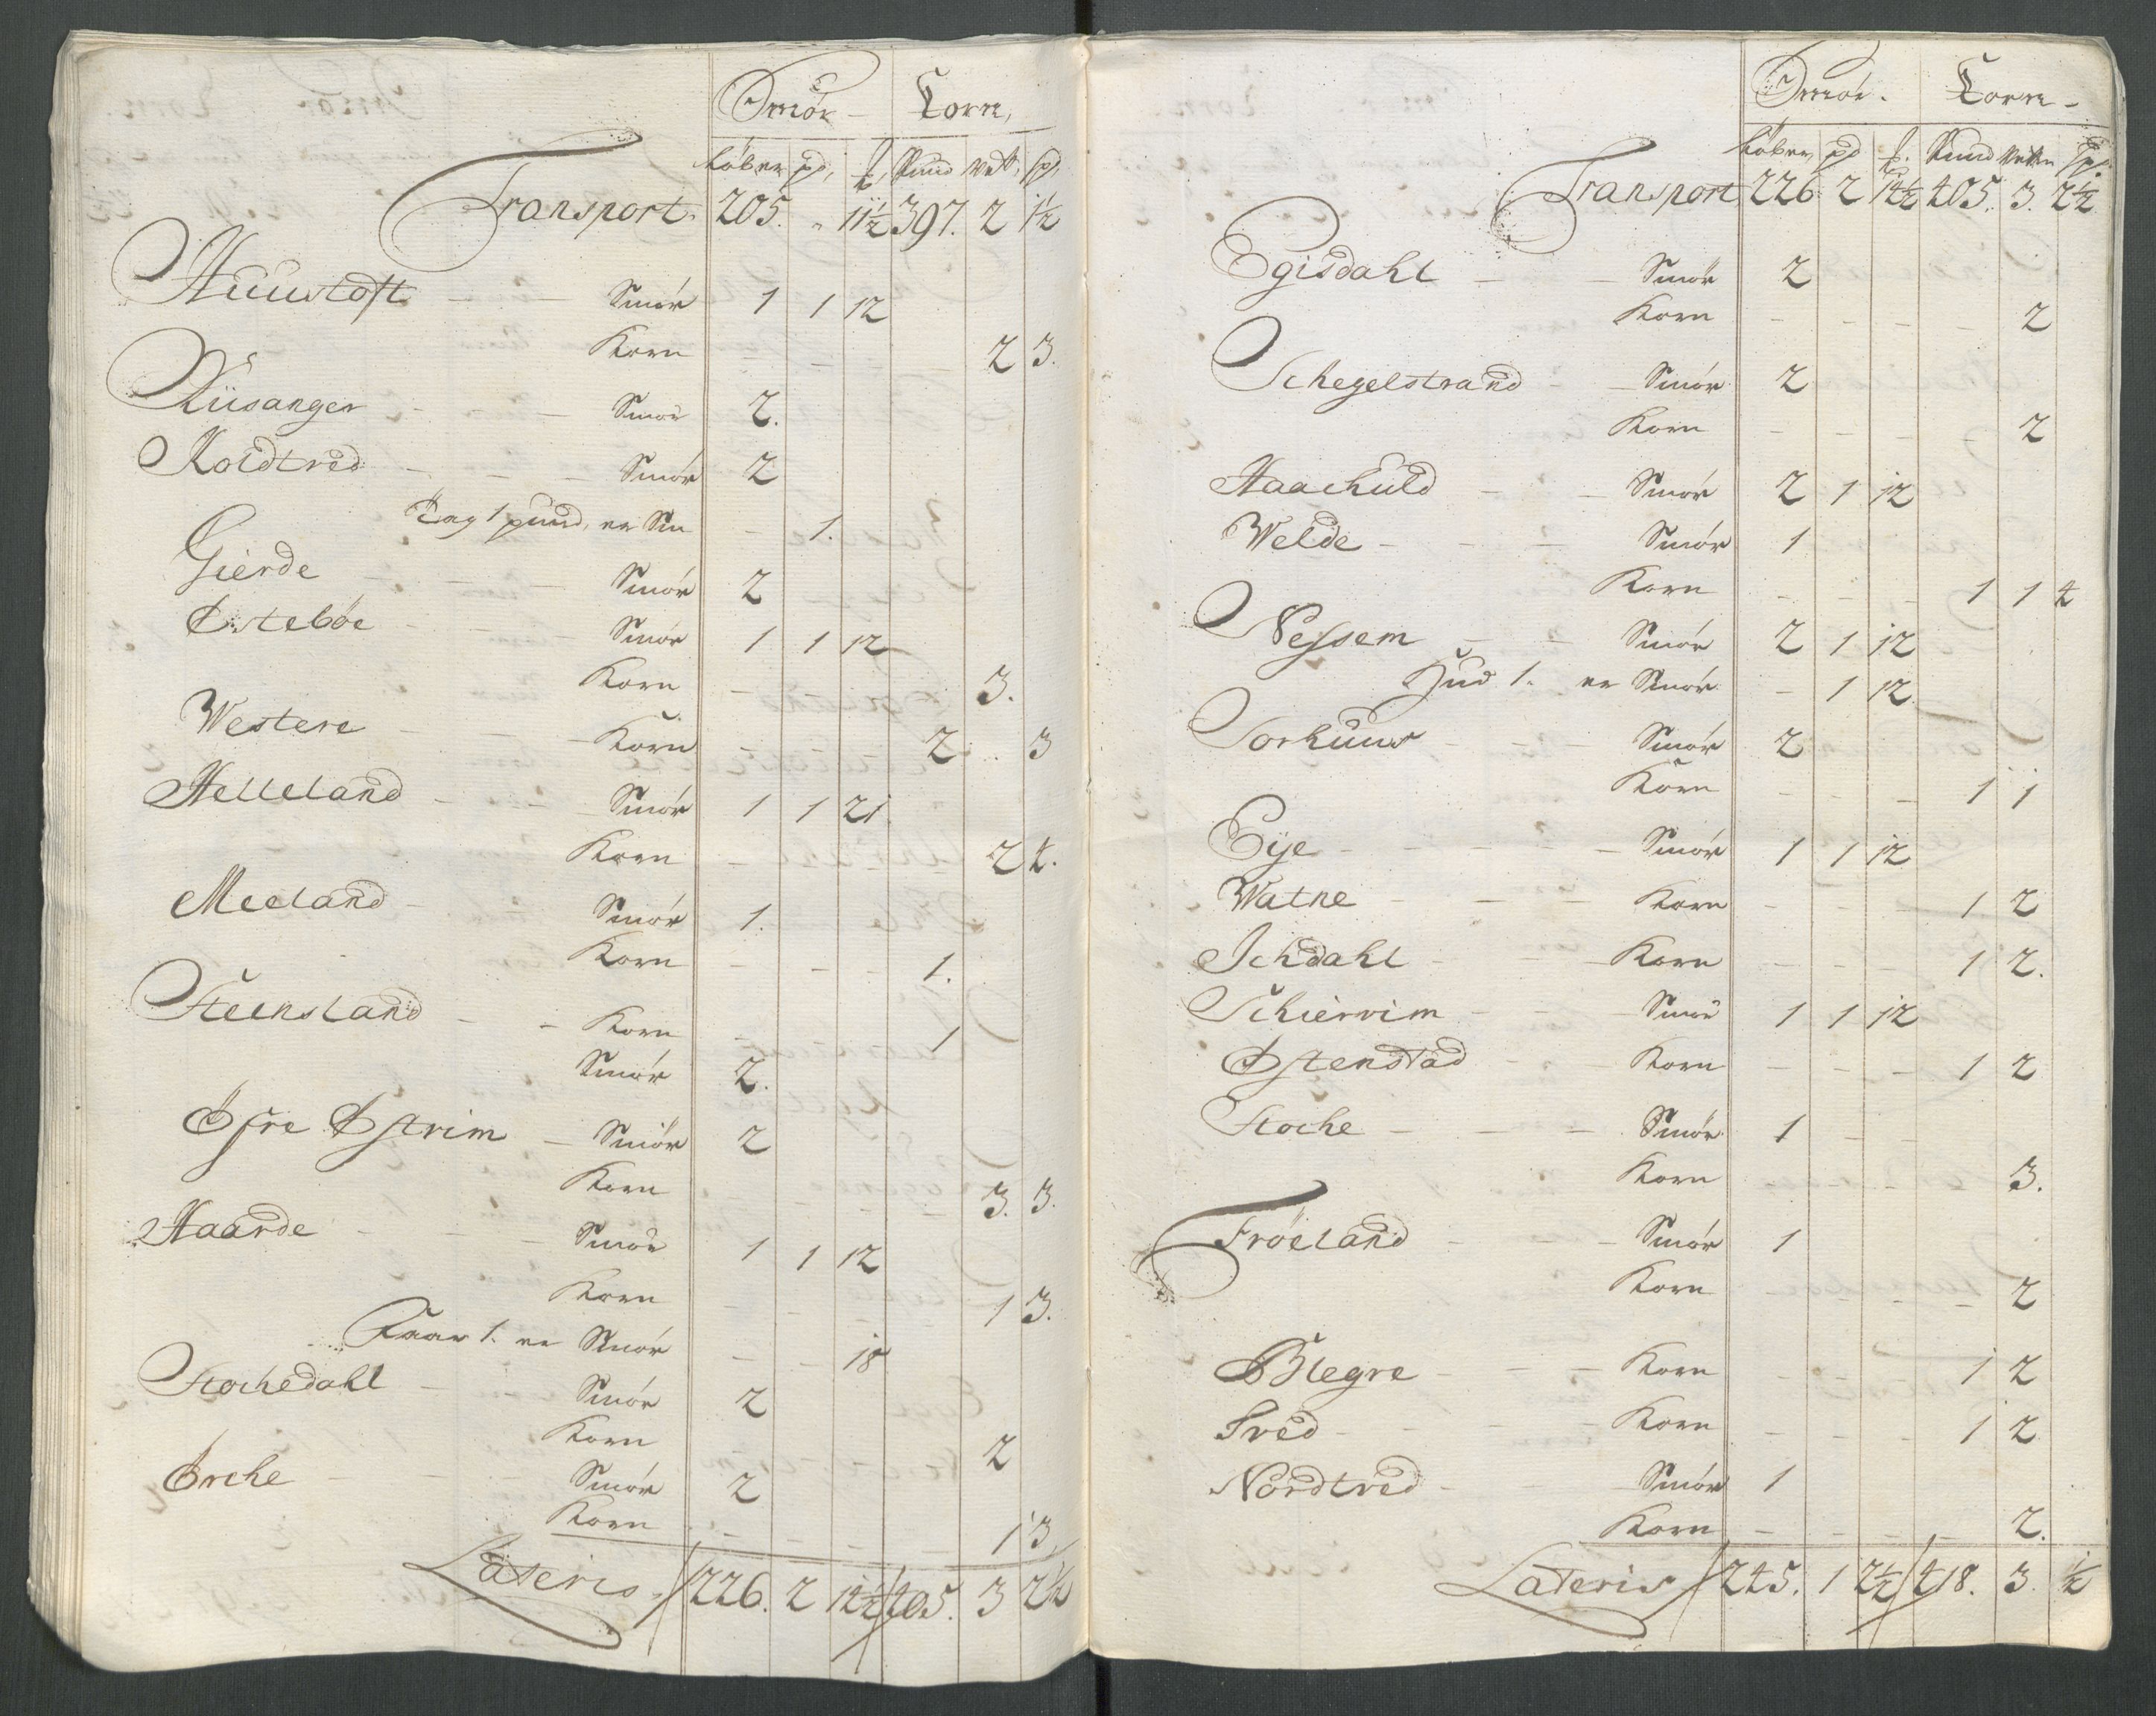 Smör Corn,
Löber pd, ℔, Pund vett, sp,
Transport. 205. „ 11½ 397. 2 1½
Huustoft Smör 1 1 12
Korn 2 3.
Riisanger Smör 2.
Koldtved Smör 2
Tag 1 pund, er Sm 1.
Gierde Smör 2
Østebøe Smör 1 1 12
Korn 3.
Westere Korn 2 3
Helleland Smör 1 1 21
Korn 2 4.
Meeland Smör 1.
Korn 1.
Steensland Korn 1
Smör 2.
Øfre Østrim Smör 2
Korn 3. 3.
Haarde Smör 1 1 12
Korn 1 3.
Faar 1. er Smör 18
Stochedahl Smör 2
Korn 2
Ørche Smör 2
Korn 1 3
Lateris 226. 2 14½ 405. 3 2½
Smör. Corn
Löber, pd ℔. Pund Vetten Sp.
Transport 226. 2 14½ 405. 3. 2½
Egisdahl Smör 2
Korn 2
Schegelstrand Smör 2
Korn 2
Haachuld Smör 2 1 12
Welde Smör 1
Korn 1 1 4
Nessem Smör 2 1 12
Hud 1. er Smör 1 12
Sorhuus Smör 2
Korn 1 1
Eije Smör 1 1 12
Watne Korn 1 2
Ichdahl Korn 1 2.
Schiervim Smör 1 1 12
Østenstad Korn 1 2
Stoche Smör 1
Korn 3.
Fröeland Smör 1
Korn 2
Blegre Korn 1 2
Tved Korn 1 2
Nordtved Smör 1
Korn 2.
Lateris 245. 1 2½ 418. 3. ½